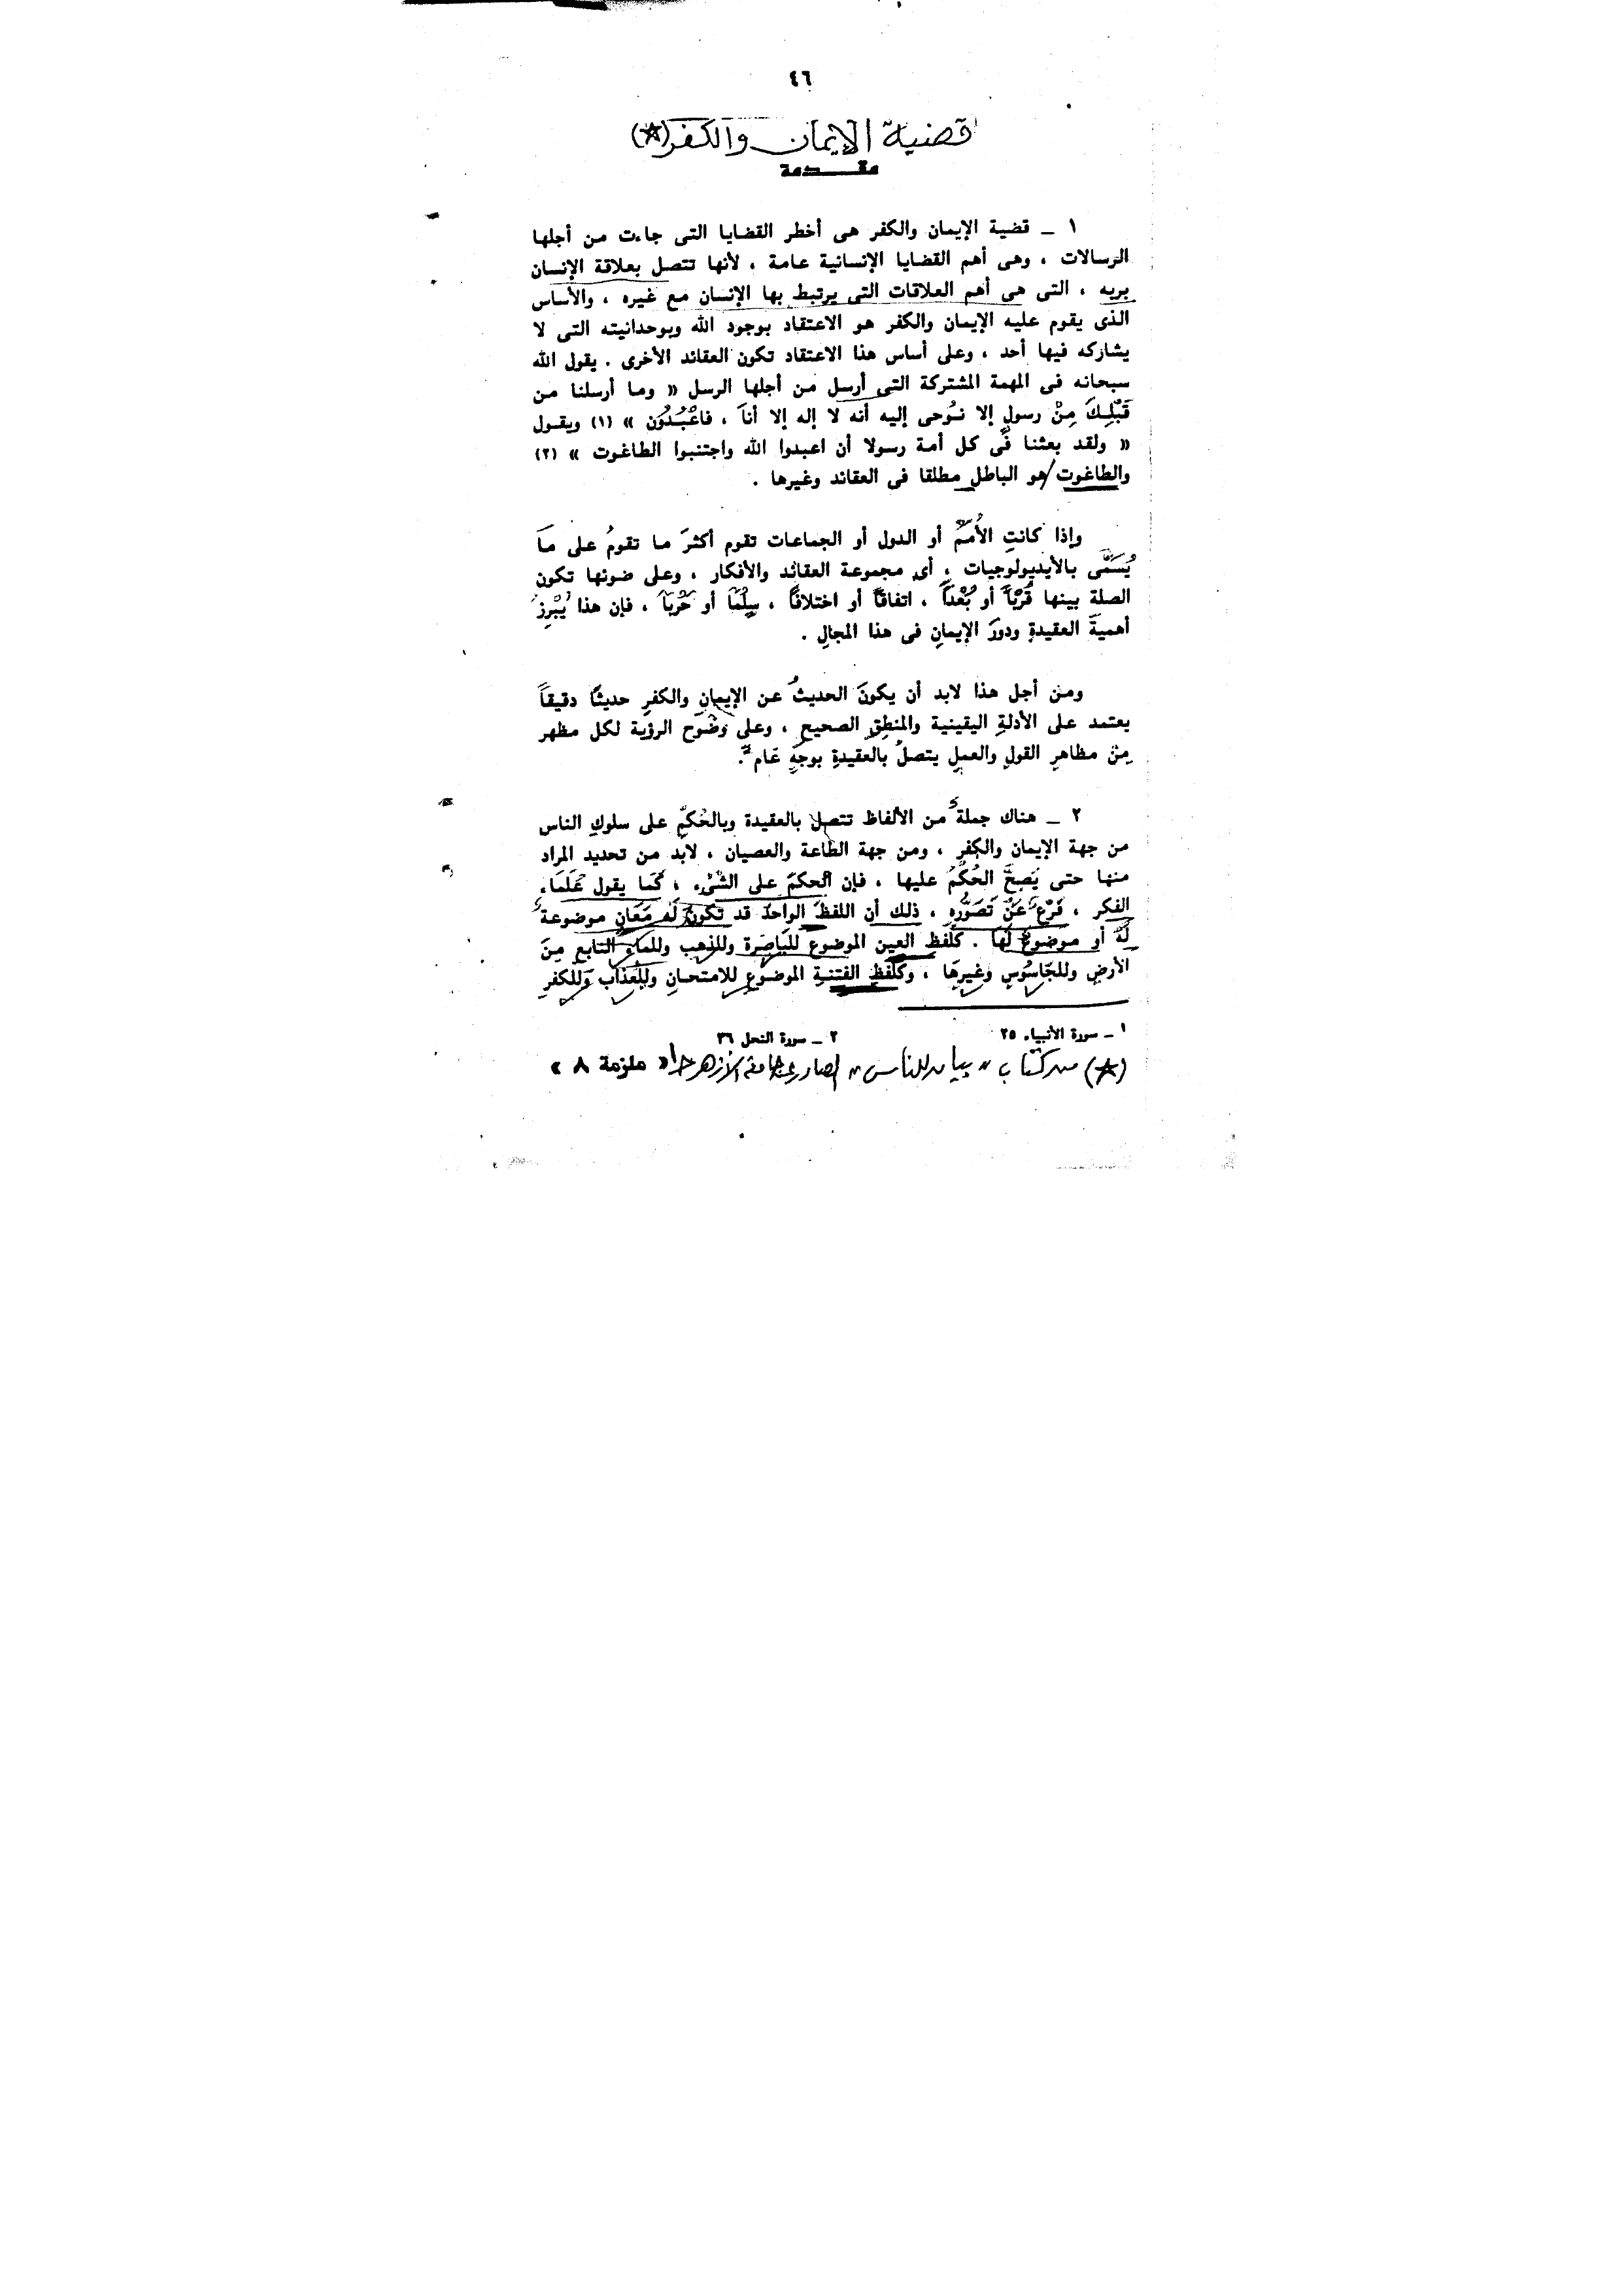 ٤٦
قضية الإيمان والكفر (*)
مقدمة
١ ـ قضية الإيمان والكفر هى أخطر القضايا التى جاءت من أجلها
الرسالات ، وهى أهم القضايا الإنسانية عامة ، لأنها تتصل بعلاقة الإنسان
بربه ، التى هى أهم العلاقات التى يرتبط بها الإنسان مع غيره ، والأساس
الذى يقوم عليه الإيمان والكفر هو الاعتقاد بوجود الله وبوحدانيته التى لا
يشاركه فيها أحد ، وعلى أساس هذا الاعتقاد تكون العقائد الأخرى . يقول الله
سبحانه فى المهمة المشتركة التى أرسل من أجلها الرسل « وما أرسلنا من
قَبْلِكَ مِنْ رسولٍ إلا نُوحى إليه أنه لا إله إلا أناَ ، فاعْبُدُون » (١) ويقول
« ولقد بعثنا فى كل أمة رسولا أن اعبدوا الله واجتنبوا الطاغوت » (٢)
والطاغوت / هو الباطل مطلقا فى العقائد وغيرها .
وإذا كانتِ الأُمَمُ أو الدول أو الجماعات تقوم أكثرَ ما تقومُ على مَا
يُسَمَّى بالأيديولوجيات ، أى مجموعة العقائد والأفكار ، وعلى ضوئها تكون
الصلة بينها قُرْبَاً أو بُعْداً ، اتفاقاً أو اختلافاً ، سِلْمَاً أو حَرْبَاً ، فإن هذا يُبْرِزُ
أهميةَ العقيدةِ ودورَ الإيمانِ فى هذا المجالِ .
ومن أجل هذا لابد أن يكونَ الحديثُ عن الإيمانِ والكفرِ حديثًا دقيقاً
يعتمد على الأدلةِ اليقينية والمنطِقِ الصحيح ، وعلى وُضُوح الرؤية لكل مظهر
مِنْ مظاهرِ القولِ والعملِ يتصلُ بالعقيدةِ بوجهٍ عَام .
٢ ـ هناك جملةُ من الألفاظ تتصل بالعقيدة وبالحُكمِ على سلوكِ الناس
من جهة الإيمان والكفرِ ، ومن جهة الطاعة والعصيان ، لابد من تحديد المراد
منها حتى يَصِحَّ الحُكْمُ عليها ، فإن الحكمَ على الشئِ ، كَمَا يقول عُلَمَاء
الفكر ، فَرْعٌ عَنْ تَصَوُّرِهِ ، ذلك أن اللفظَ الواحدَ قد تكونُ لَه مَعَانٍ موضوعةٌ
لَهُ أو موضوعٌ لَهَا . كلفظِ العين الموضوعِ للبَاصِرة وللذهبِ وللماءِ النابعِ مِنَ
الأرضِ وللجَاسُوسِ وغيرِهَا ، وكَلفظِ الفتنةِ الموضوعِ للامتحانِ وللعَذابِ وَللكفرِ
١ ـ سورة الأنبياء ٢٥
٢ ـ سورة النحل ٣٦
(*) من كتاب " بيان للناس " الصادر عن جامعة الأزهر حـ١ « ملزمة ٨ »